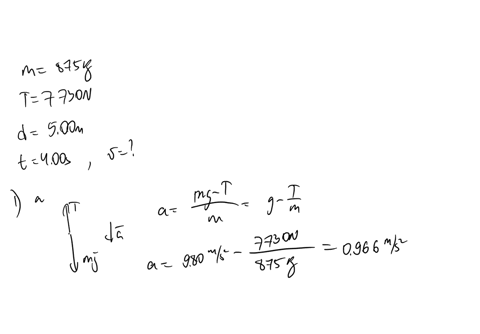 m = 875 kg
T = 7730N
d = 5.00m
t = 4.00s , v = ?
1) a
T
a
mg
a = mg-T / m = g - T / m
a = 9.80 m/s² - 7730N / 875 kg = 0.966 m/s²